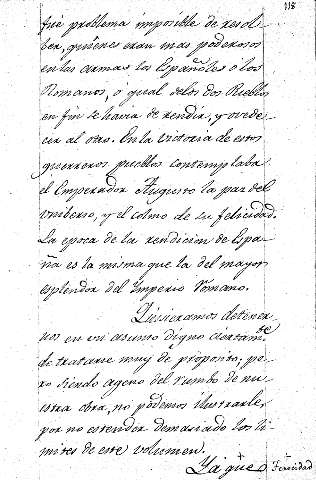 118
fue problema imposible de resol-
ber, quienes eran mas poderosos
en las armas los Españoles ô los
Romanos, ô qual de los dos Pueblos
en fin se havia de rendir, y ovede-
cer al otro. En la victoria de estos
guerreros pueblos contemplaba
el Emperador Augusto la paz del
vniberso, y el colmo de su felicidad.
La epoca de la rendicion de Espa-
ña es la misma que la del mayor
esplendor del Imperio Romano.
Quisieramos detener-
nos en vn asunto digno ciertamte
de tratarse muy de proposito, pe-
ro siendo ageno del rumbo de nu-
estra obra, no podemos ilustrarle,
por no estender demasiado los li-
mites de este volumen.
Ya que
Ferocidad